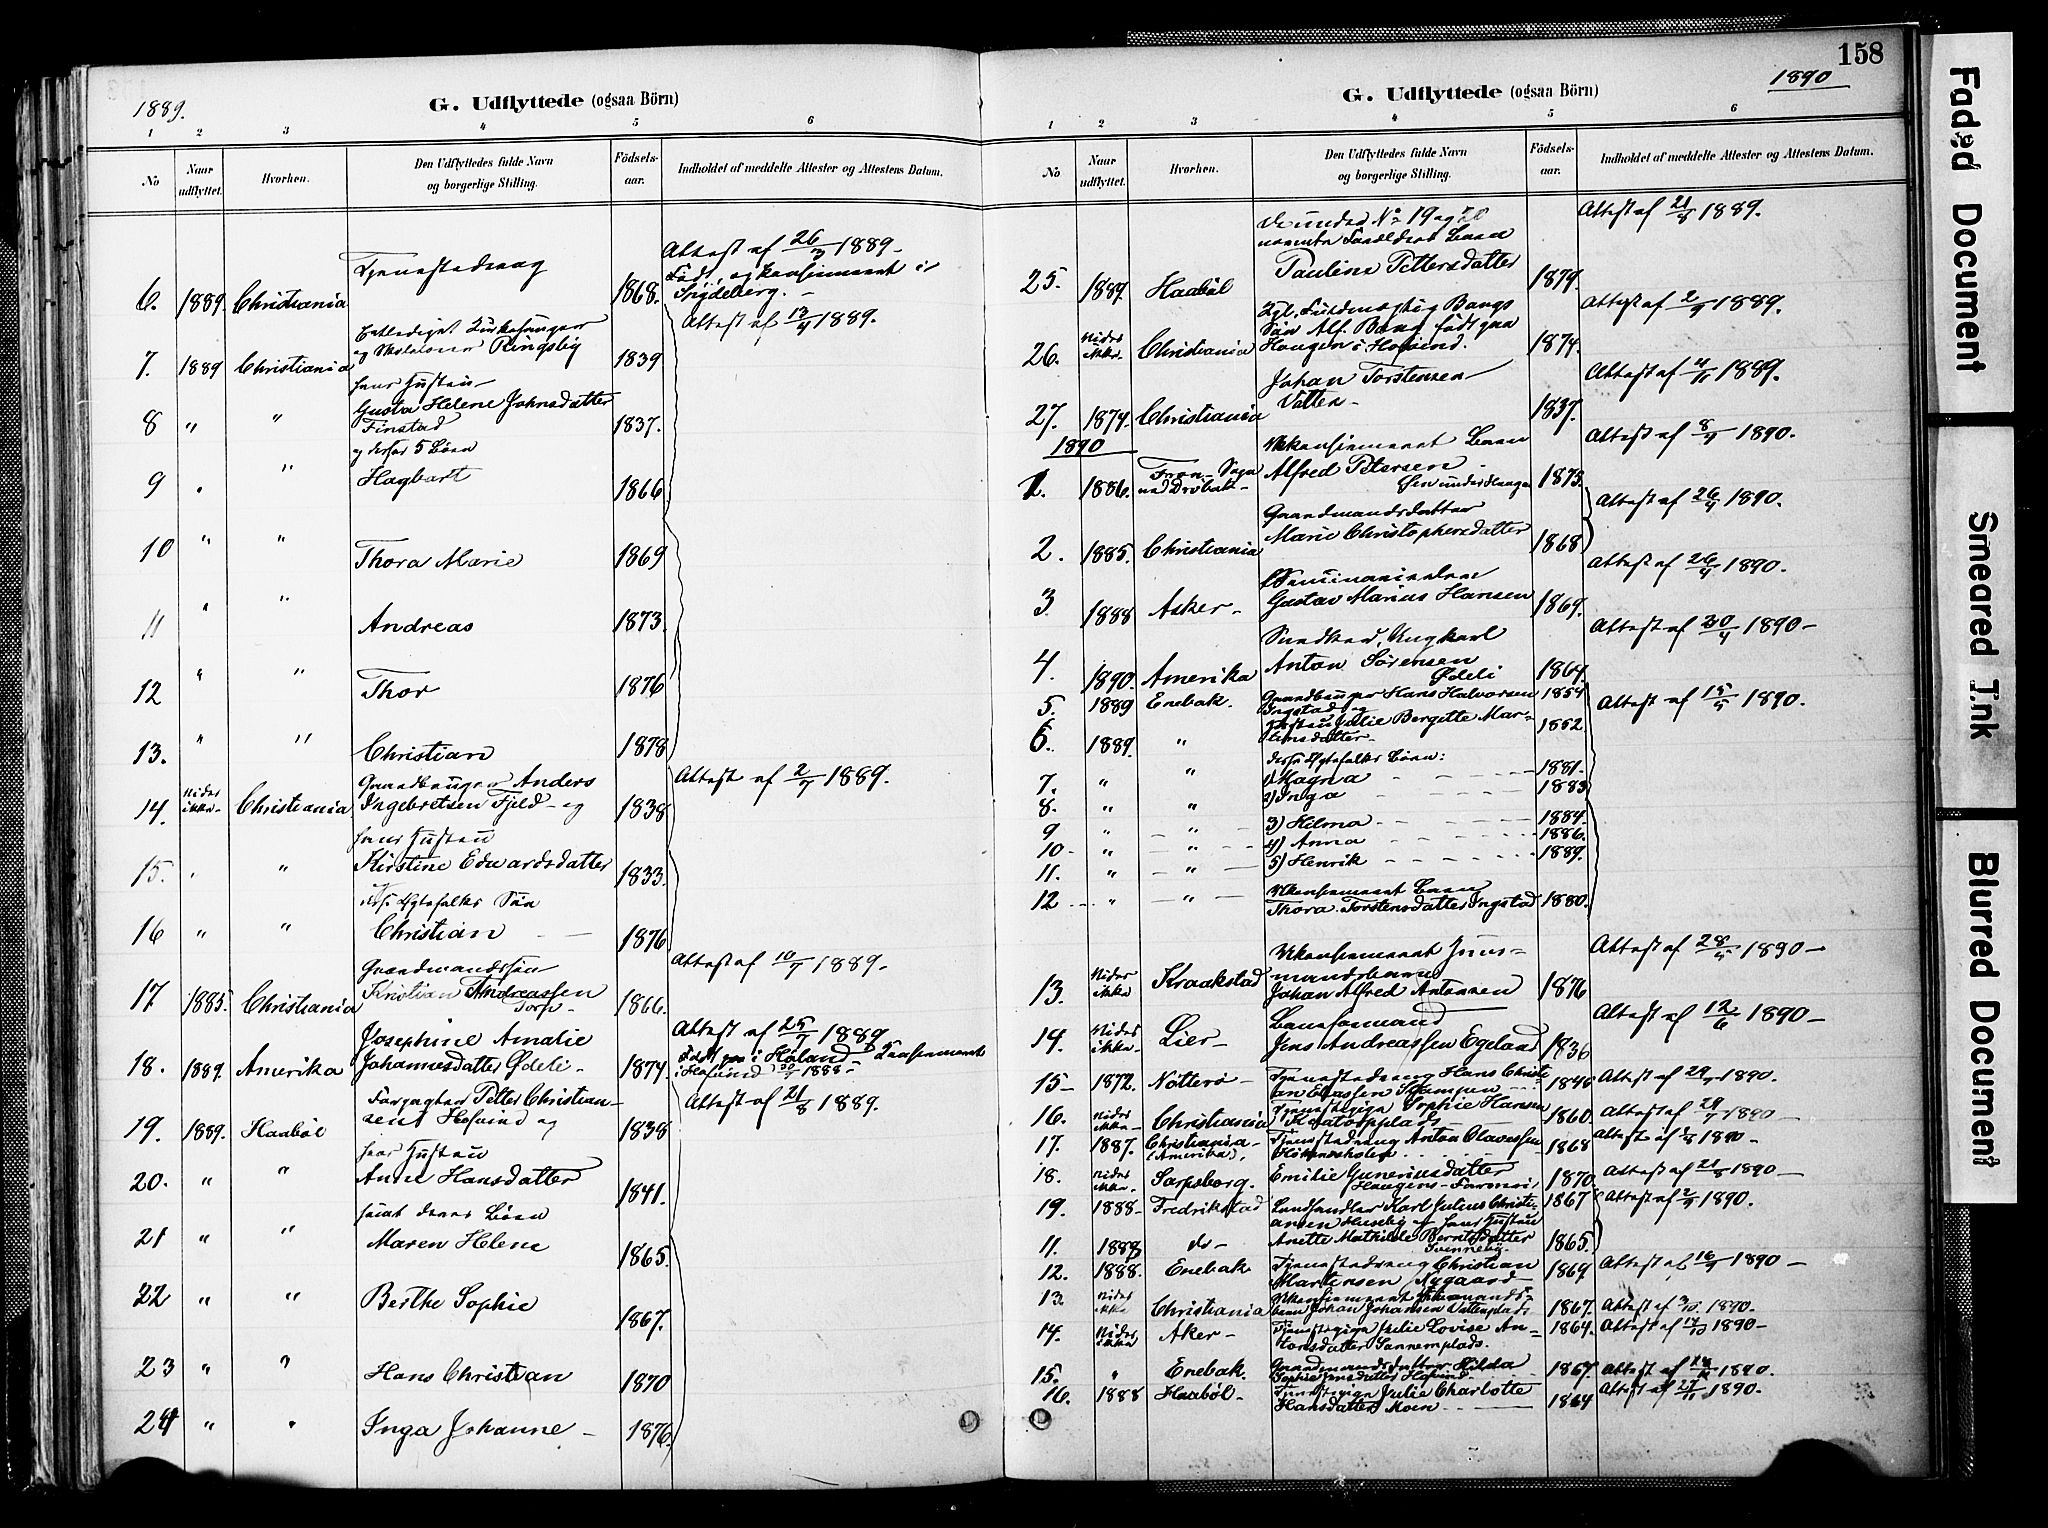 158
1889.
G. Udflyttede (ogsaa Börn)
1 2 3 4 5 6
No
Naar udflyttet.
Hvorhen.
Den Udflyttedes fulde Navn og borgerlige Stilling.
Födsels-aar.
Indholdet af meddelte Attester og Attestens Datum.
6. 1889. Christiania Tjenestedreng 1868. Attest af 26/3 1889 -
Född og konfirmeret i
Spydeberg. -
7. 1889 Christiania Entlediget Kirkesanger
og Skolelærer Ringsby 1839 Attest af 13/4 1889.
8 " " hans Hustru
Gusta Helene Johnsdatter
Finstad 1837.
og deres 5 Börn
9 " " Hagbart 1866
10 " " Thora Marie 1869
11 " " Andreas 1873.
12 " " Thor 1876
13. " " Christian 1878
14. Vides ikke Christiania Gaardbruger Anders
Ingebretsen Fjeld - og 1838 Attest af 2/7 1889.
hans Hustru
15. " " Kirstine Edwardsdatter 1833
Ægtefolks Sön
16 " " Christian - - 1876
17 1885. Christiania Gaardmandssön
Kristian Andreassen
Torp - 1866. Attest af 10/7 1889 -
18. 1889. Amerika Josephine Amalie
Johannesdatter Ødeli - 1874. Attest af 25/7 1889
Födt i Höland Konfirmeret
i Hofvind 30/9 1888 -
19. 1889. Haaböl Forpagter Petter Christian-
sen Hofvind og 1838 Attest af 21/8 1889.
hans Hustru
20. " " Anne Hansdatter 1841.
samt deres Börn
21 " " Maren Helene 1865.
22 " " Berthe Sophie 1867.
23 " " Hans Christian 1870
24 " " Inga Johanne - 1876.
1890
G. Udflyttede (ogsaa Börn)
1 2 3 4 5 6
No
Naar udflyttet.
Hvorhen.
Den Udflyttedes fulde Navn og borgerlige Stilling.
Födsels-aar.
Indholdet af meddelte Attester og Attestens Datum.
De under No 19 og 20
nævnte Forældres Barn
25. 1889. Haaböl Pauline Pettersdatter 1879. Attest af 21/8 1889.
26. Vides ikke. Christiania Kgl. Fuldmægtig Bangs
Sön Alf. Bang födt paa
Haugen i Hofvind. 1874. Attest af 2/9 1889.
27. 1874. Christiania Johan Torstensen
Vatten - 1837. Attest af 4/11 1889.
1890
1. 1886. Fron - Sogn
ved Dröbak - Ukonfirmeret Barn
Alfred Petersen
Öien under Haugen 1875. Attest af 8/4 1890.
2. 1885. Christiania Gaardmandsdatter
Marie Christophersdatter 1868 Attest af 26/4 1890.
3. 1888 Asker - Seminarieelev
Gustav Marius Hansen 1869. Attest af 26/4 1890.
4. 1890. Amerika Snedker, Ungkarl
Anton Sörensen
Ødeli 1864. Attest af 30/4 1890 -
5. 1889 Enebak. Gaardbruger Hans Halvorsen
Ingstad og 1854 Attest af 15/5 1890.
6. 1889. " Hustru Julie Bergitte Mar-
tinsdatter - 1852.
disse Ægtefolks Börn:
7. " " 1) Magna - 1881.
8. " " 2) Inga - 1883
9 " " 3) Hilma - 1884.
10 - " " 4) Anna - 1886.
11. " " 5) Henrik - 1889.
12 " " Ukonfirmeret Barn
Thora Torstensdatter Ingstad 1880.
13. Vides ikke Kraakstad Ukonfirmeret Huus-
mandsbarn
Johan Alfred Antonsen 1876 Attest af 28/5 1890 -
14. Vides ikke - Lier - Baneformand
Jens Andreassen Egeland 1836 Attest af 12/6 1890 -
15 - 1872. Nötterö - Tjenestedreng Hans Christi-
an Eliassen 1845 Attest af 29/7 1890.
16. Vides ikke - Christiania Tjenestepige Sophie Hansen
1860 Attest af 29/7 1890 -
17. 1887. Christiania -
(Amerika). Tjenestedreng Anton Olavessen
1868 Attest af 1890 -
18. Vides ikke. Sarpsborg. Emilie Guneriusdatter
Haugens - 1870. Attest af 21/8 1890 -
19. 1888 - Fredrikstad Landhandler Karl Julius Christi-
ansen Huseby og hans Hustru 1867 Attest af 2/9 1890.
11. 1888 do - Anette Mathilde Berntsdatter
Svenneby. 1865.
12. 1888. Enebak Tjenestedreng Christian
Martensen Nygaard - 1869 Attest af 16/9 1890 -
13. Vides ikke Christiania Ukonfirmeret Huusmands-
barn Johan Johansen Vattenplads 1867. Attest af 3/10 1890.
14. Vides ikke Aker - Tjenestepige Julie Lovise An-
tonsdatter Sannemplads. 1864. Attest af 17/10 1890 -
15. " Enebak. Gaardmandsdatter Hilda
Sophie Jensdatter Hofvind - 1867. Attest af 1890.
16. 1888 Haaböl - Tjenestepige Julie Charlotte
Hansdatter Moen - 1864 Attest af 27/11 1890.
Faded Document
Smeared Ink
Blurred Document